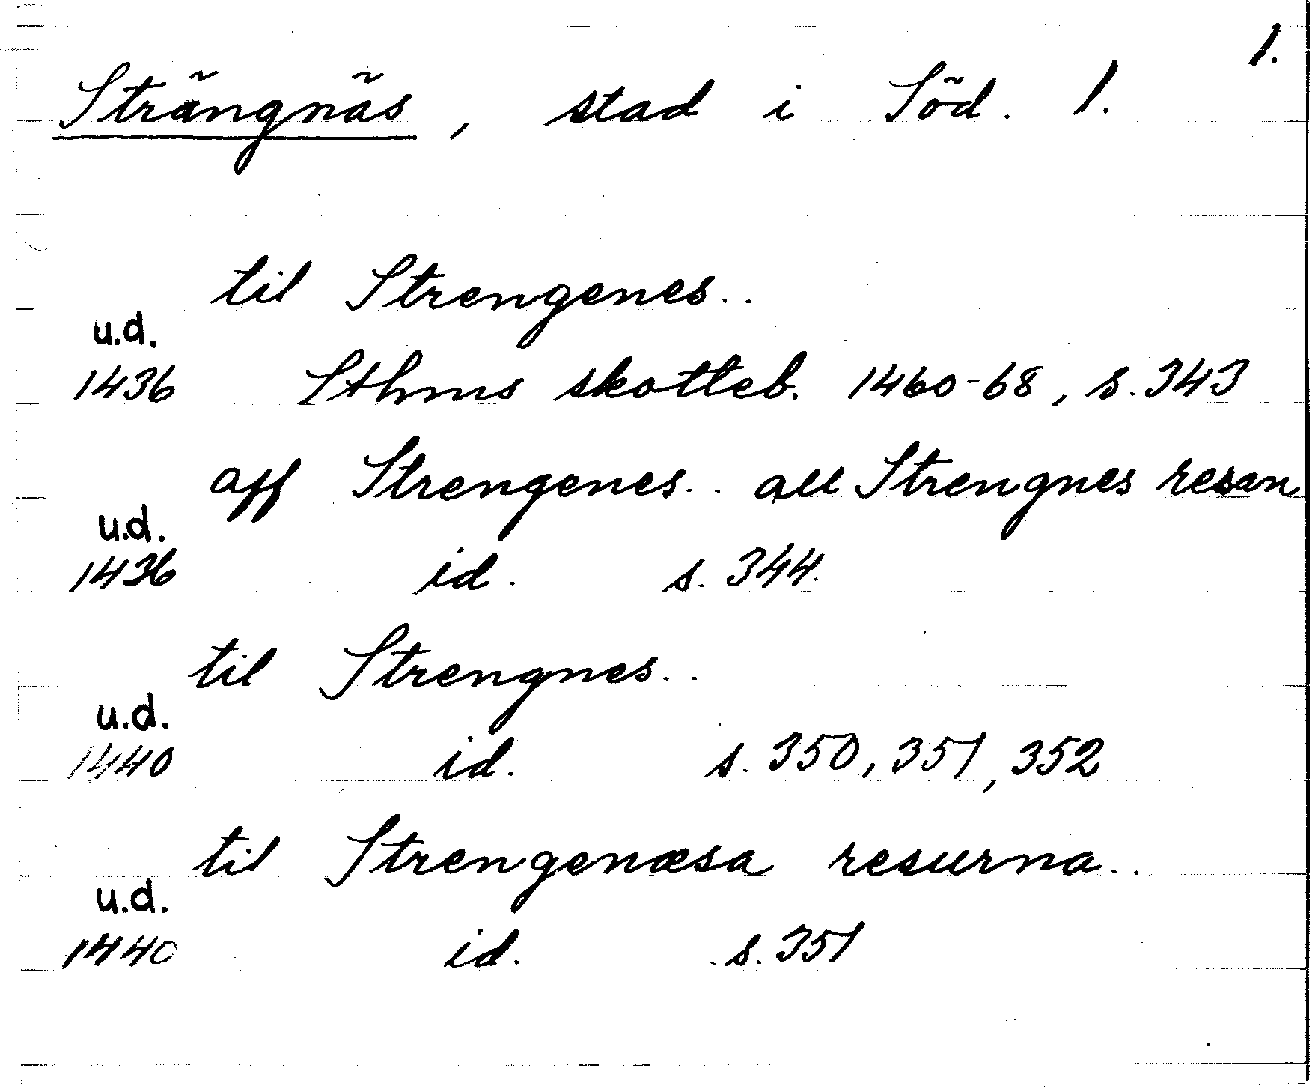 1.
Strängnäs, stad i Söd. 1.
til Strengenes..
u.d.
1436 Sthms skotteb. 1460-68, s. 343
aff Strengenes.. all Strengnes resan
u.d.
1436 id. s. 344.
til Strengnes..
u.d.
1440 id. s. 350, 351, 352
til Strengenæsa resurna..
u.d.
1440 id. s. 351